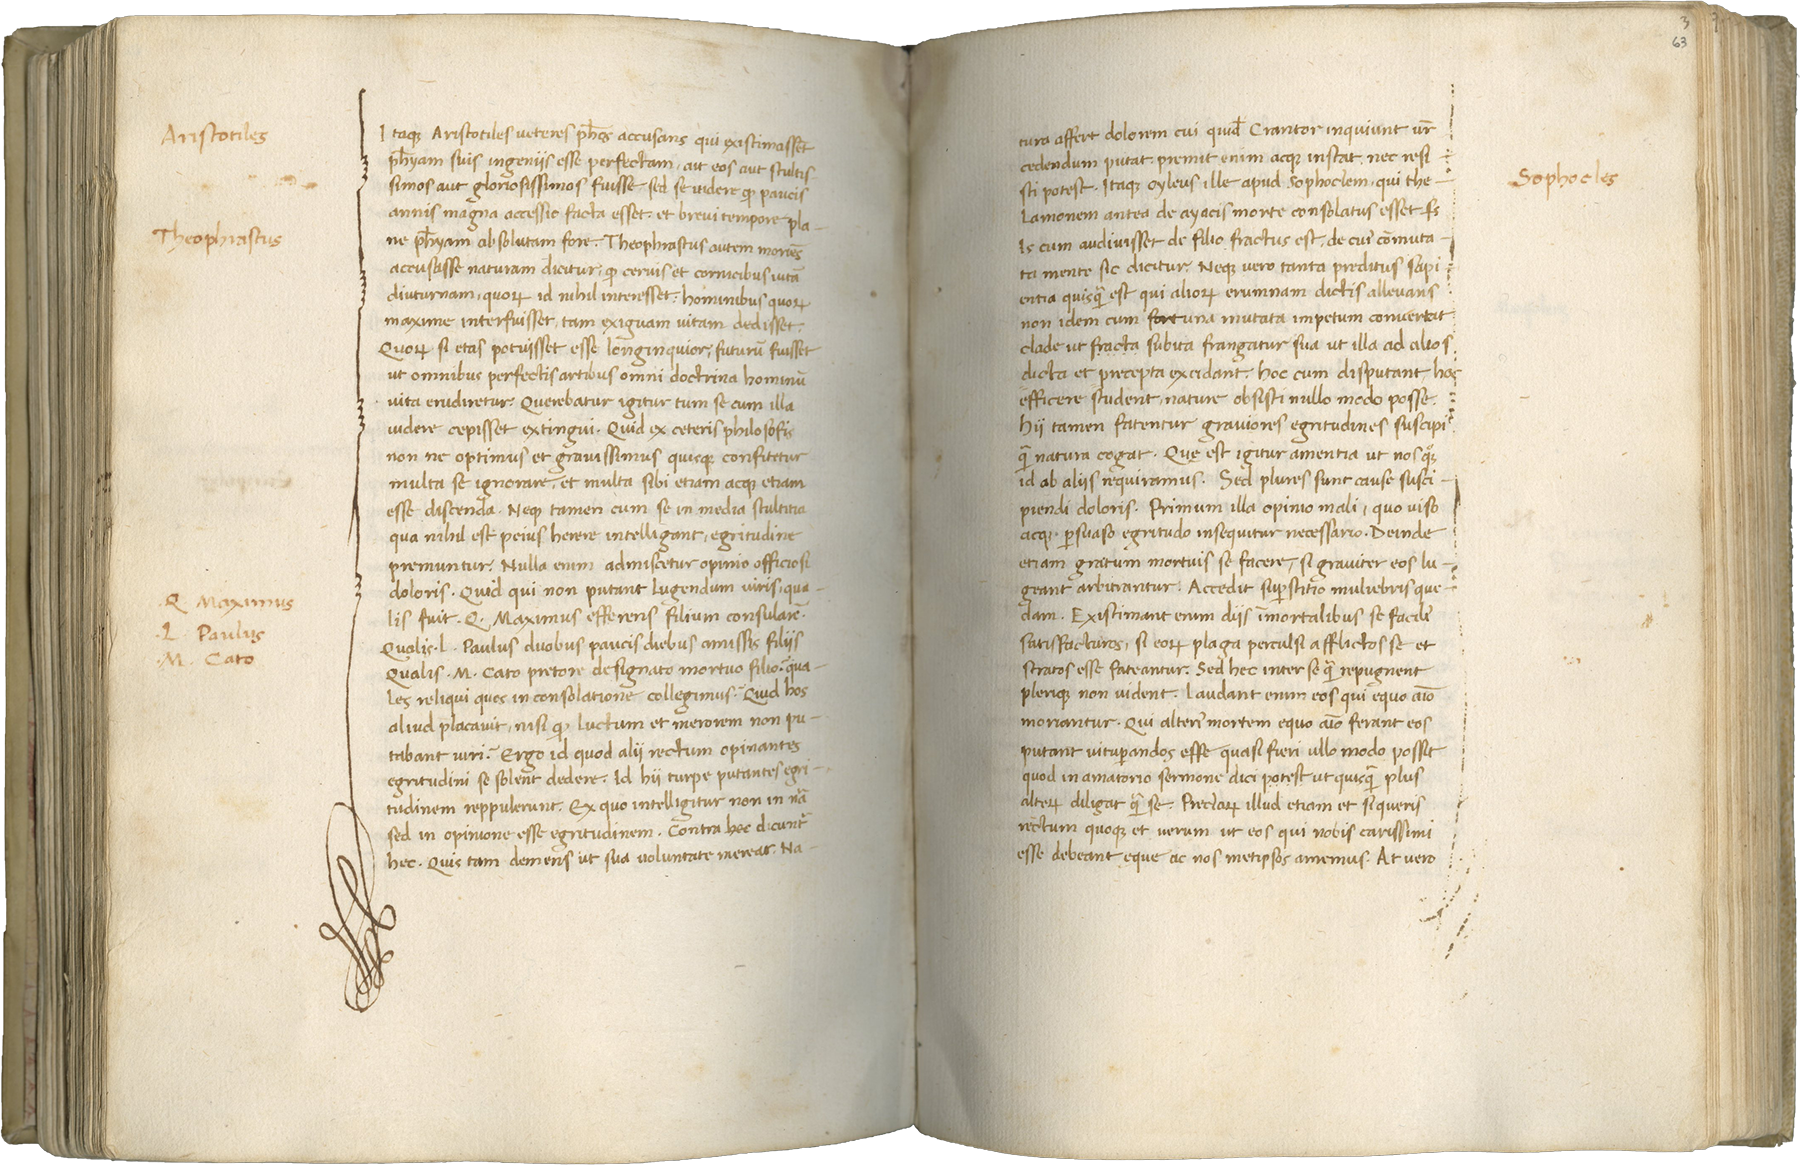 Aristotiles
Theophrastus
.Q. Maximus
.L. Paulus
.M. Cato
Itaqȝ Aristotiles veteres ph̄os accusans qui existimasset
ph̄yam suis ingenijs esse perfectam, aut eos aut stultis
simos aut gloriosissimos fuisse. sed se videre qȝ paucis
annis magna accessio facta esset. et brevi tempore pla-
ne ph̄yam absolutam fore. Theophrastus autem moriēs
accusasse naturam dicitur, qȝ cervis et cornicibus vitā
diuturnam, quoꝝ id nihil interesset. hominibus quoꝝ
maxime interfuisset, tam exiguam vitam dedisset.
Quoꝝ si etas potuisset esse longinquior, futurū fuisset
ut omnibus perfectis artibus omni doctrina hominū
vita erudiretur. Querebatur igitur tum se cum illa
videre cepisset extingui. Quid ex ceteris philosofis
non ne optimus et gravissimus quisqȝ confitetur
multa se ignorare, et multa sibi etiam atqȝ etiam
esse discenda. Neqȝ tamen cum se in media stultitia
qua nihil est peius herere intelligant, egritudine
premuntur. Nulla enim admiscetur opinio officiosi
doloris. Quid qui non putant lugendum viris, qua-
lis fuit. Q. Maximus efferens filium consularē.
Qualis. L. Paulus duobus paucis diebus amissis filijs
Qualis. M. Cato pretore designato mortuo filio. qua-
les reliqui quos in consolatione collegimus. Quid hos
aliud placavit, nisi qȝ luctum et merorem non pu-
tabant viri. Ergo id quod alij rectum opinantes
egritudini se solent dedere. Id hij turpe putantes egri-
tudinem reppulerunt. Ex quo intelligitur non in nā
sed in opinione esse egritudinem. Contra hec dicunt̄
hec. Quis tam demens ut sua voluntate mereat. Na-
3
63
tura affert dolorem cui quid̄ Crantor inquiunt vr̄
cedendum putat. premit enim atqȝ instat. nec resi
sti potest. Itaqȝ oyleus ille apud Sophoclem, qui the-
lamonem antea de ayacis morte consolatus esset
Is cum audivisset de filio fractus est. de cui' cōmuta-
ta mente sic dicitur. Neqȝ vero tanta preditus sapi
entia quisqꝫ̄ est qui alioꝝ erumnam dictis allevans
non idem cum fortuna mutata impetum convertat
clade ut fracta subita frangatur sua ut illa ad alios
dicta et precepta excidant. hoc cum disputant hoc
efficere student, nature obsisti nullo modo posse.
hij tamen fatentur graviores egritudines suscipi
qꝫ̄ natura cogat. Que est igitur amentia ut nos qȝ
id ab alijs requiramus. Sed plures sunt cause susci-
piendi doloris. Primum illa opinio mali, quo viso
atqȝ ꝑsuaso egritudo insequitur necessario. Deinde
etiam gratum mortuis se facere, si graviter eos lu-
geant arbitrantur. Accedit suꝑstitio muliebris que-
dam. Existimant enim dijs īmortalibus se facili'
satisfacturos, si eoꝝ plaga perculsi afflictos se et
stratos esse fateantur. Sed hec inter se qꝫ̄ repugnent
pleriqȝ non vident. Laudant enim eos qui equo aīo
moriantur. Qui alteri' mortem equo aīo ferant eos
putant vituꝑandos esse quasi fieri ullo modo possit
quod in amatorio sermone dici potest ut quisqꝫ̄ plus
alteꝝ diligat qꝫ̄ se. Preclaꝝ illud etiam et si queris
rectum quoqȝ et verum ut eos qui nobis carissimi
esse debeant eque ac nos metipsos amemus. At vero
Sophocles